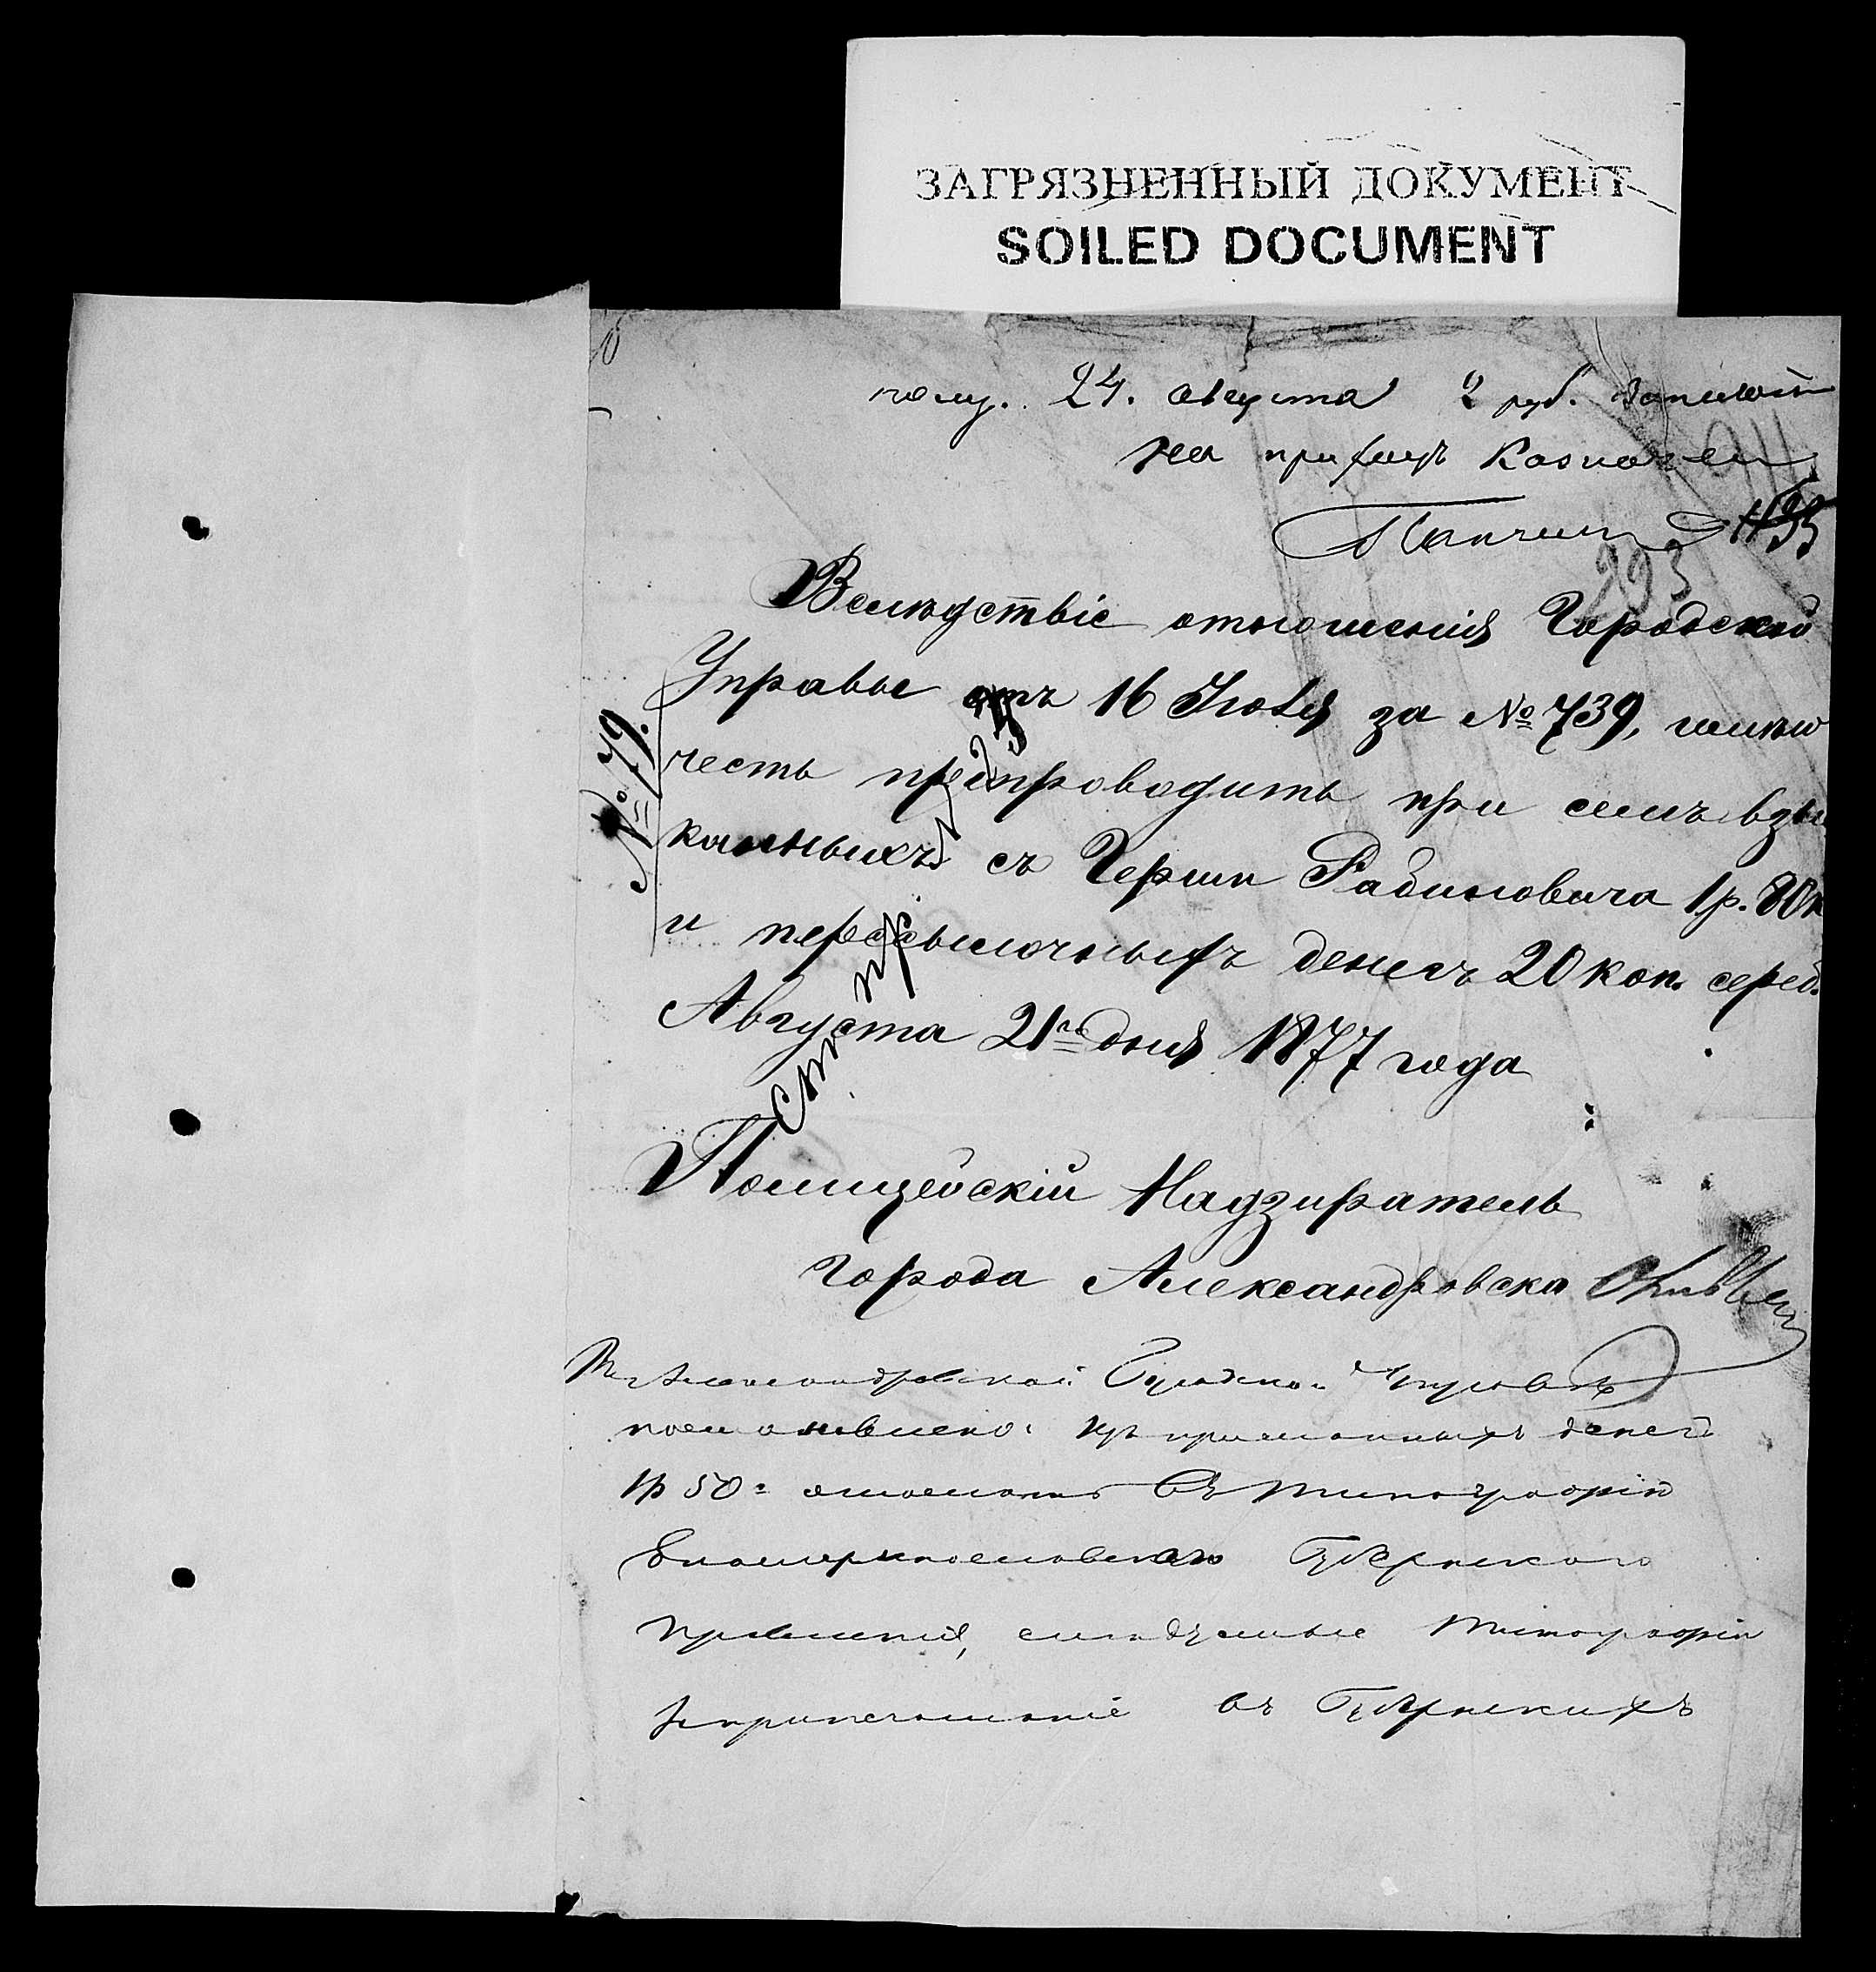 ЗАГРЯЗНЕННЫЙ ДОКУМЕНТ
SOILED DOCUMENT
полу. 24. августа 2 руб.
на приходъ Казначеи
1193
293
Вслѣдствіе отношенія Городской
Управы отъ 16 Іюля за № 739, имѣю
честь препроводить при семъ взы
сканныхъ съ Герши Рабиновича 1 р. 80 к
и пересылочныхъ денегъ 20 коп. сереб.
Августа 21го дня 1877 года
№ 79.
Полицейскій Надзиратель
города Александровска
Въ Александровской Городской Управѣ
постановлено: Изъ присланныхъ денегъ
1 р 50 к отослать въ типографію
Екатеринославскаго Губернскаго
Правленія, слѣдуемые типографіи
за припечатаніе въ Губернскихъ